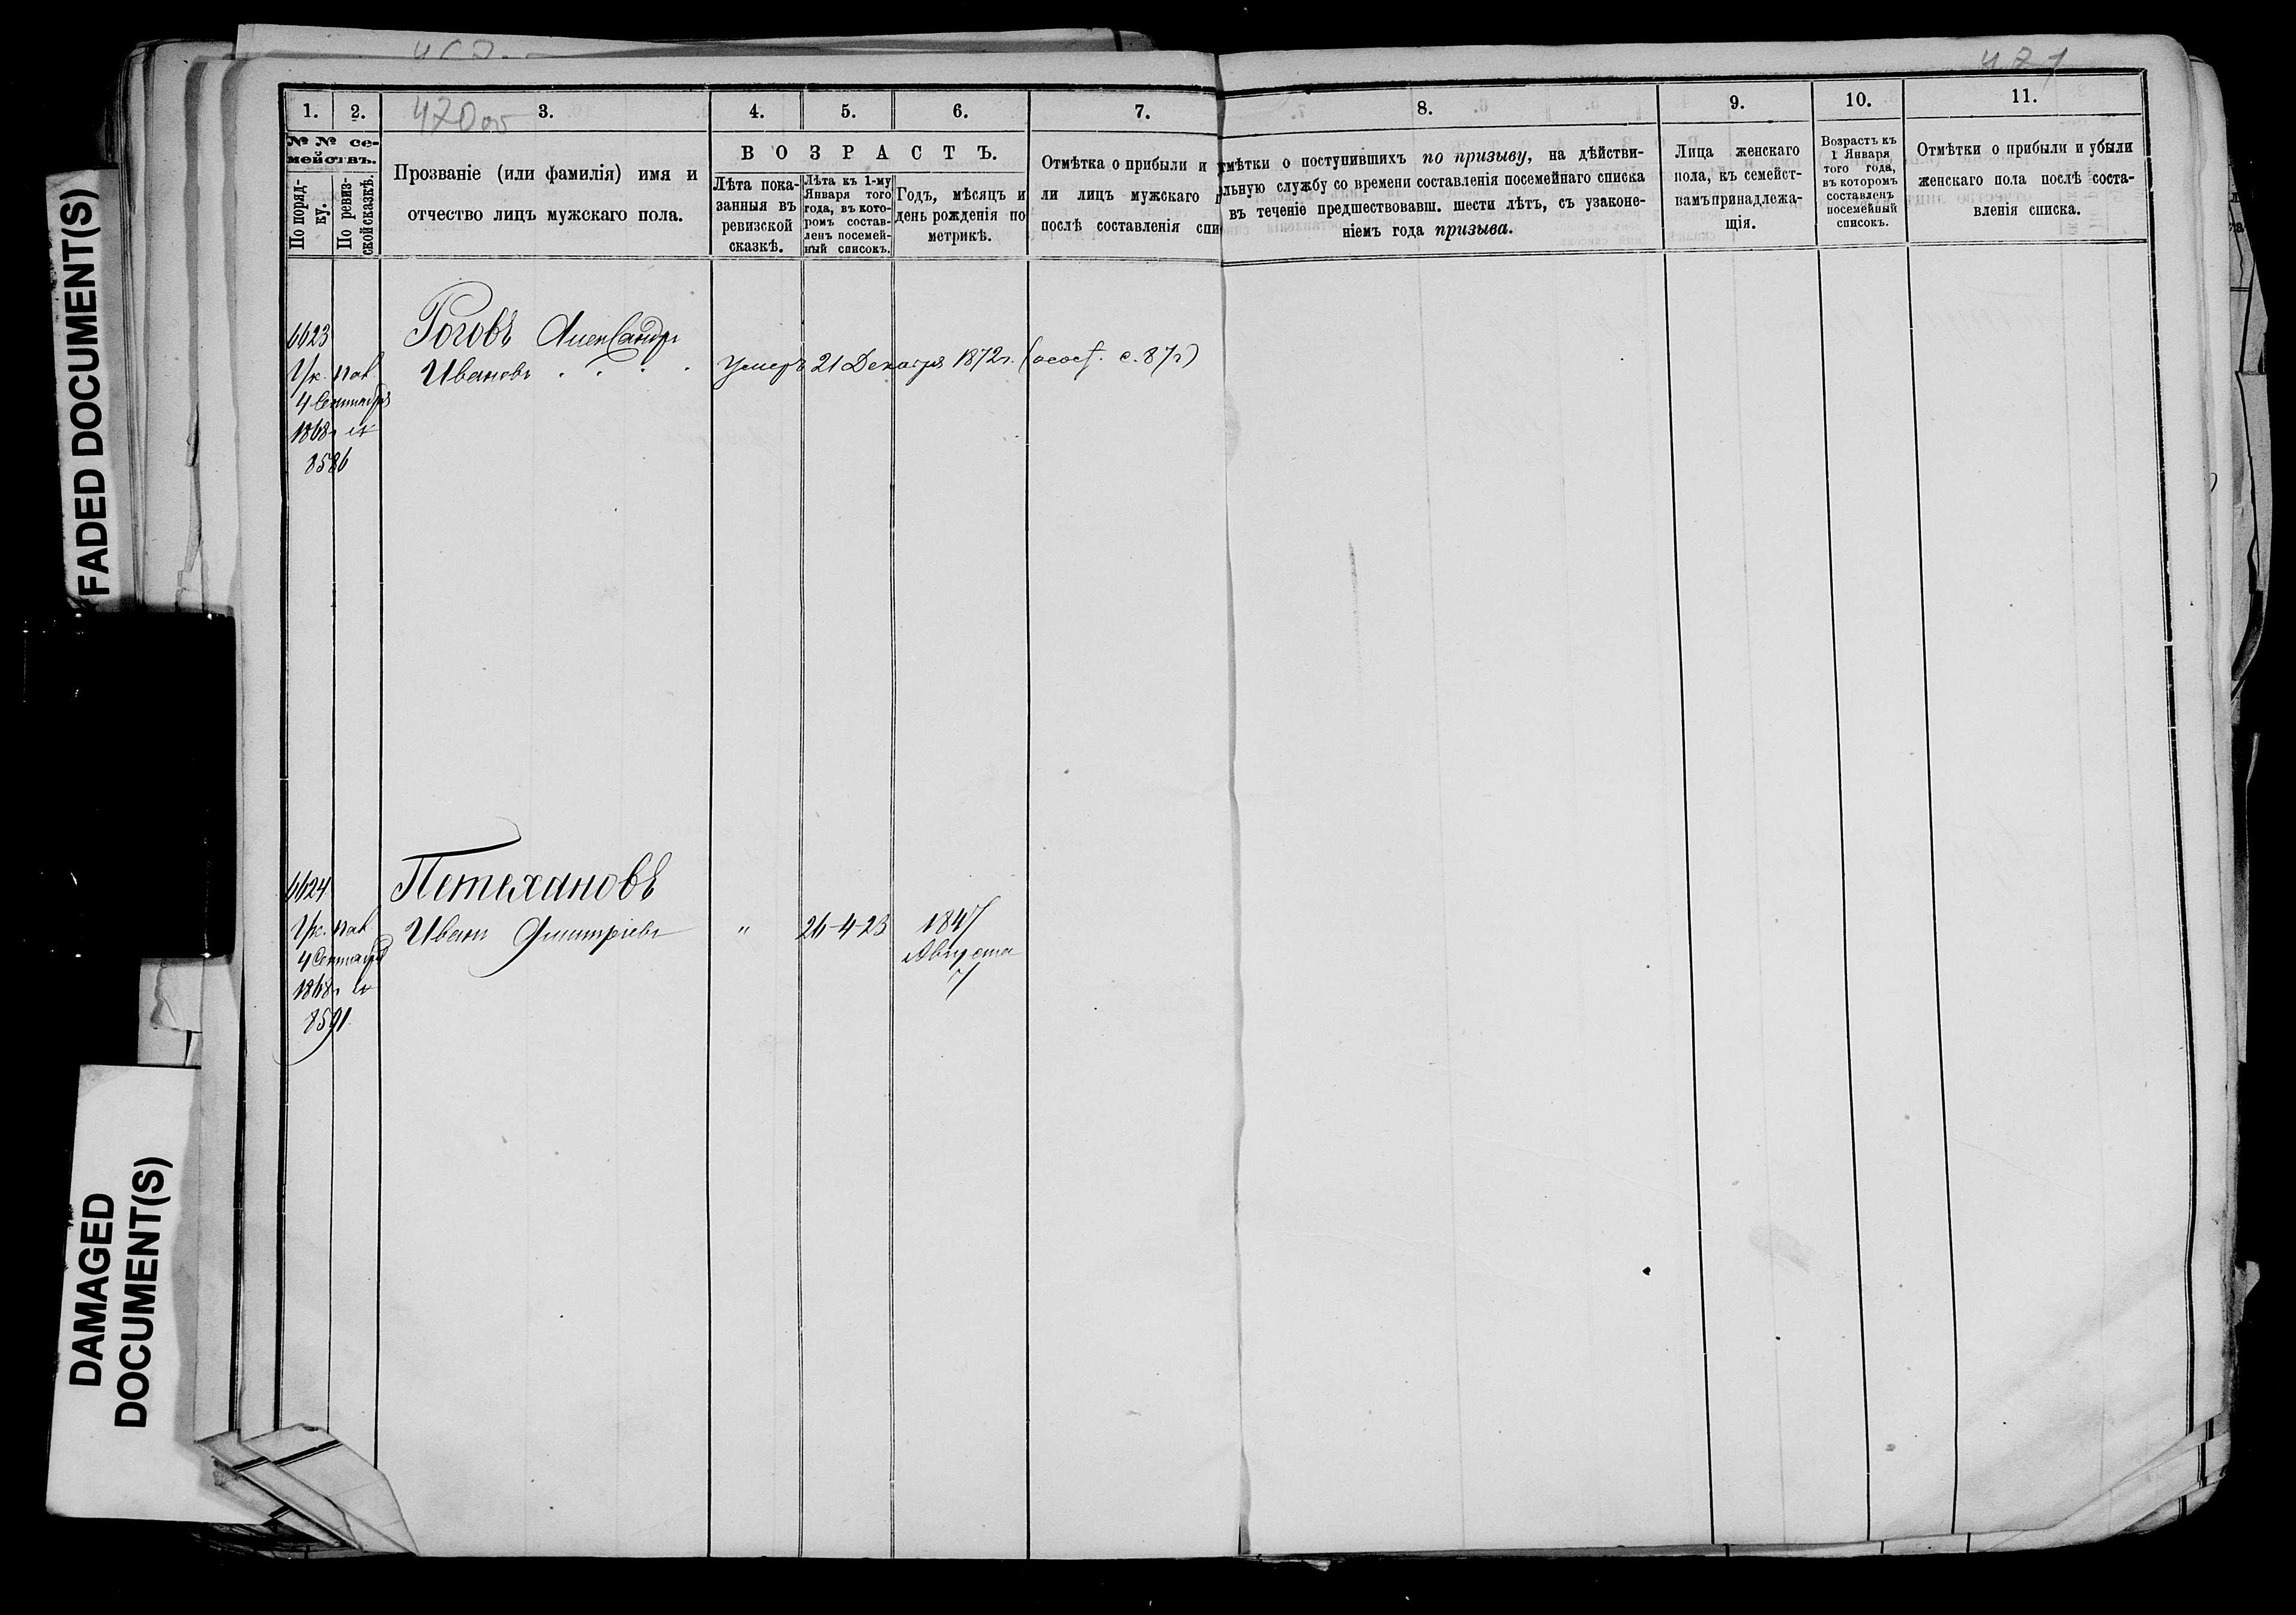 FADED DOCUMENT(S)
DAMAGED
DOCUMENT(S)
470 об
471
1.
2.
3.
4.
5.
6.
7.
8.
9.
10.
11.
№ № се-
мействъ.
По поряд-
ку.
По ревиз-
ской сказкѣ.
Прозваніе (или фамилія) имя и
отчество лицъ мужскаго пола.
ВОЗРАСТЪ.
Лѣта пока-
занныя въ
ревизской
сказкѣ.
Лѣта къ 1-му
Января того
года, въ кото-
ромъ состав-
ленъ посемей-
ный списокъ.
Годъ, мѣсяцъ и
день рожденія по
метрикѣ.
Отмѣтка о прибыли и
ли лицъ мужскаго п
послѣ составленія спи
тмѣтки о поступившихъ по призыву, на дѣйстви-
льную службу со времени составленія посемейнаго списка
въ теченіе предшествовавш. шести лѣтъ, съ узаконе-
ніемъ года призыва.
Лица женскаго
пола, къ семейст-
вамъ принадлежа-
щія.
Возрастъ къ
1 Января
того года,
въ которомъ
составленъ
посемейный
списокъ.
Отмѣтки о прибыли и убыли
женскаго пола послѣ соста-
вленія списка.
6623
Роговъ Александръ
Ивановъ
Умеръ 21 Декабря 1872 г. с. 87
4 Сентября
1868
8586
6624
Петелановъ
Иванъ Дмитріевъ
"
26-4-23
1847
Августа
7
4 Сентября
1868
8591